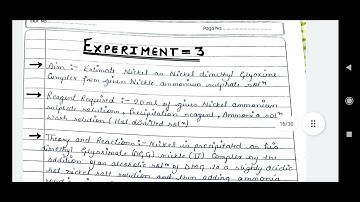 Page No.
EXPERIMENT = 3
→ Aim :- Estimate Nickel as Nickel dimethyl Glyoxime
Complex from given Nickle ammonium sulphate solⁿ
→ Reagent Required :- 20ml of given Nickel ammonium
sulphate solutions, Precipitation reagent, Ammonia solⁿ
Wash solution (Hot distilled solⁿ)
18/30
→ Theory and Reactions :- Nickel is precipitated as
dimethyl Glyoximate (DMG) nickle (II) Complex by the
addition of an alcoholic solⁿ of DMG to a slightly acidic
hot nickel salt solution and then adding ammonia